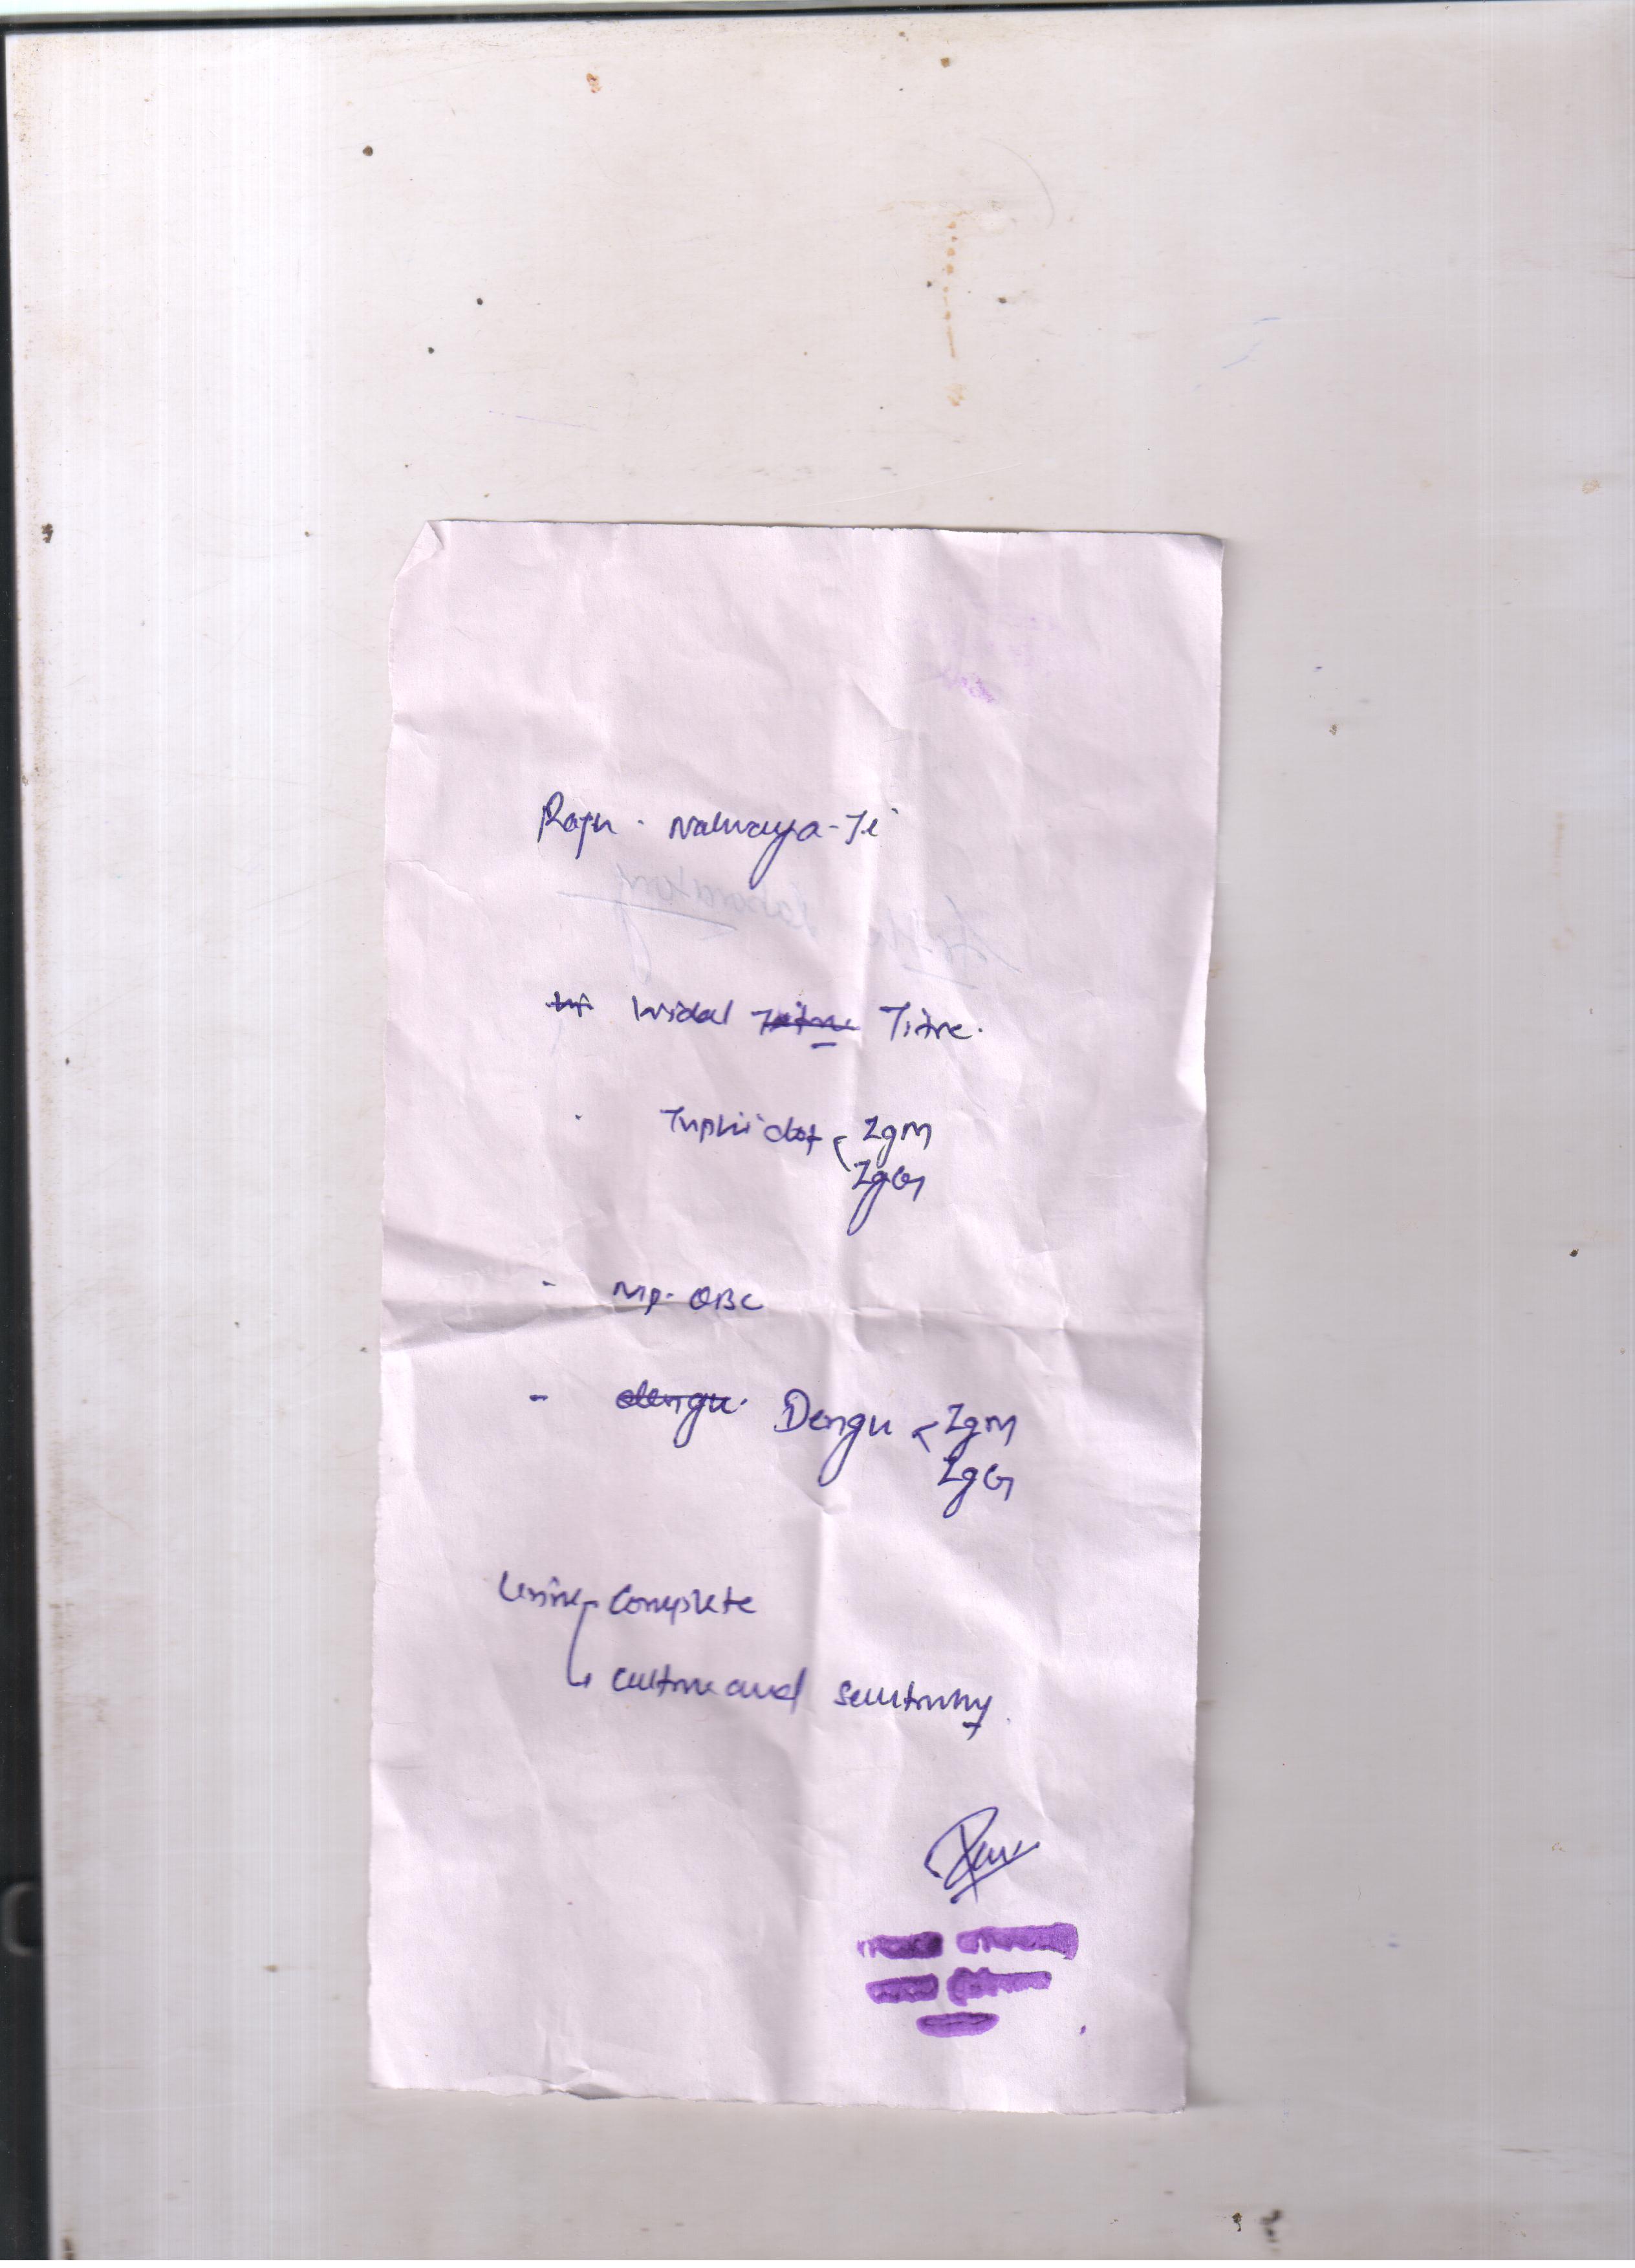 Raju. Nalwaya-Ji
Widal Titre Titre.
Typhidot IgM
IgG
- MP-QBC
- dengu. Dengu IgM
IgG
Urine Complete
culture and sensitivity